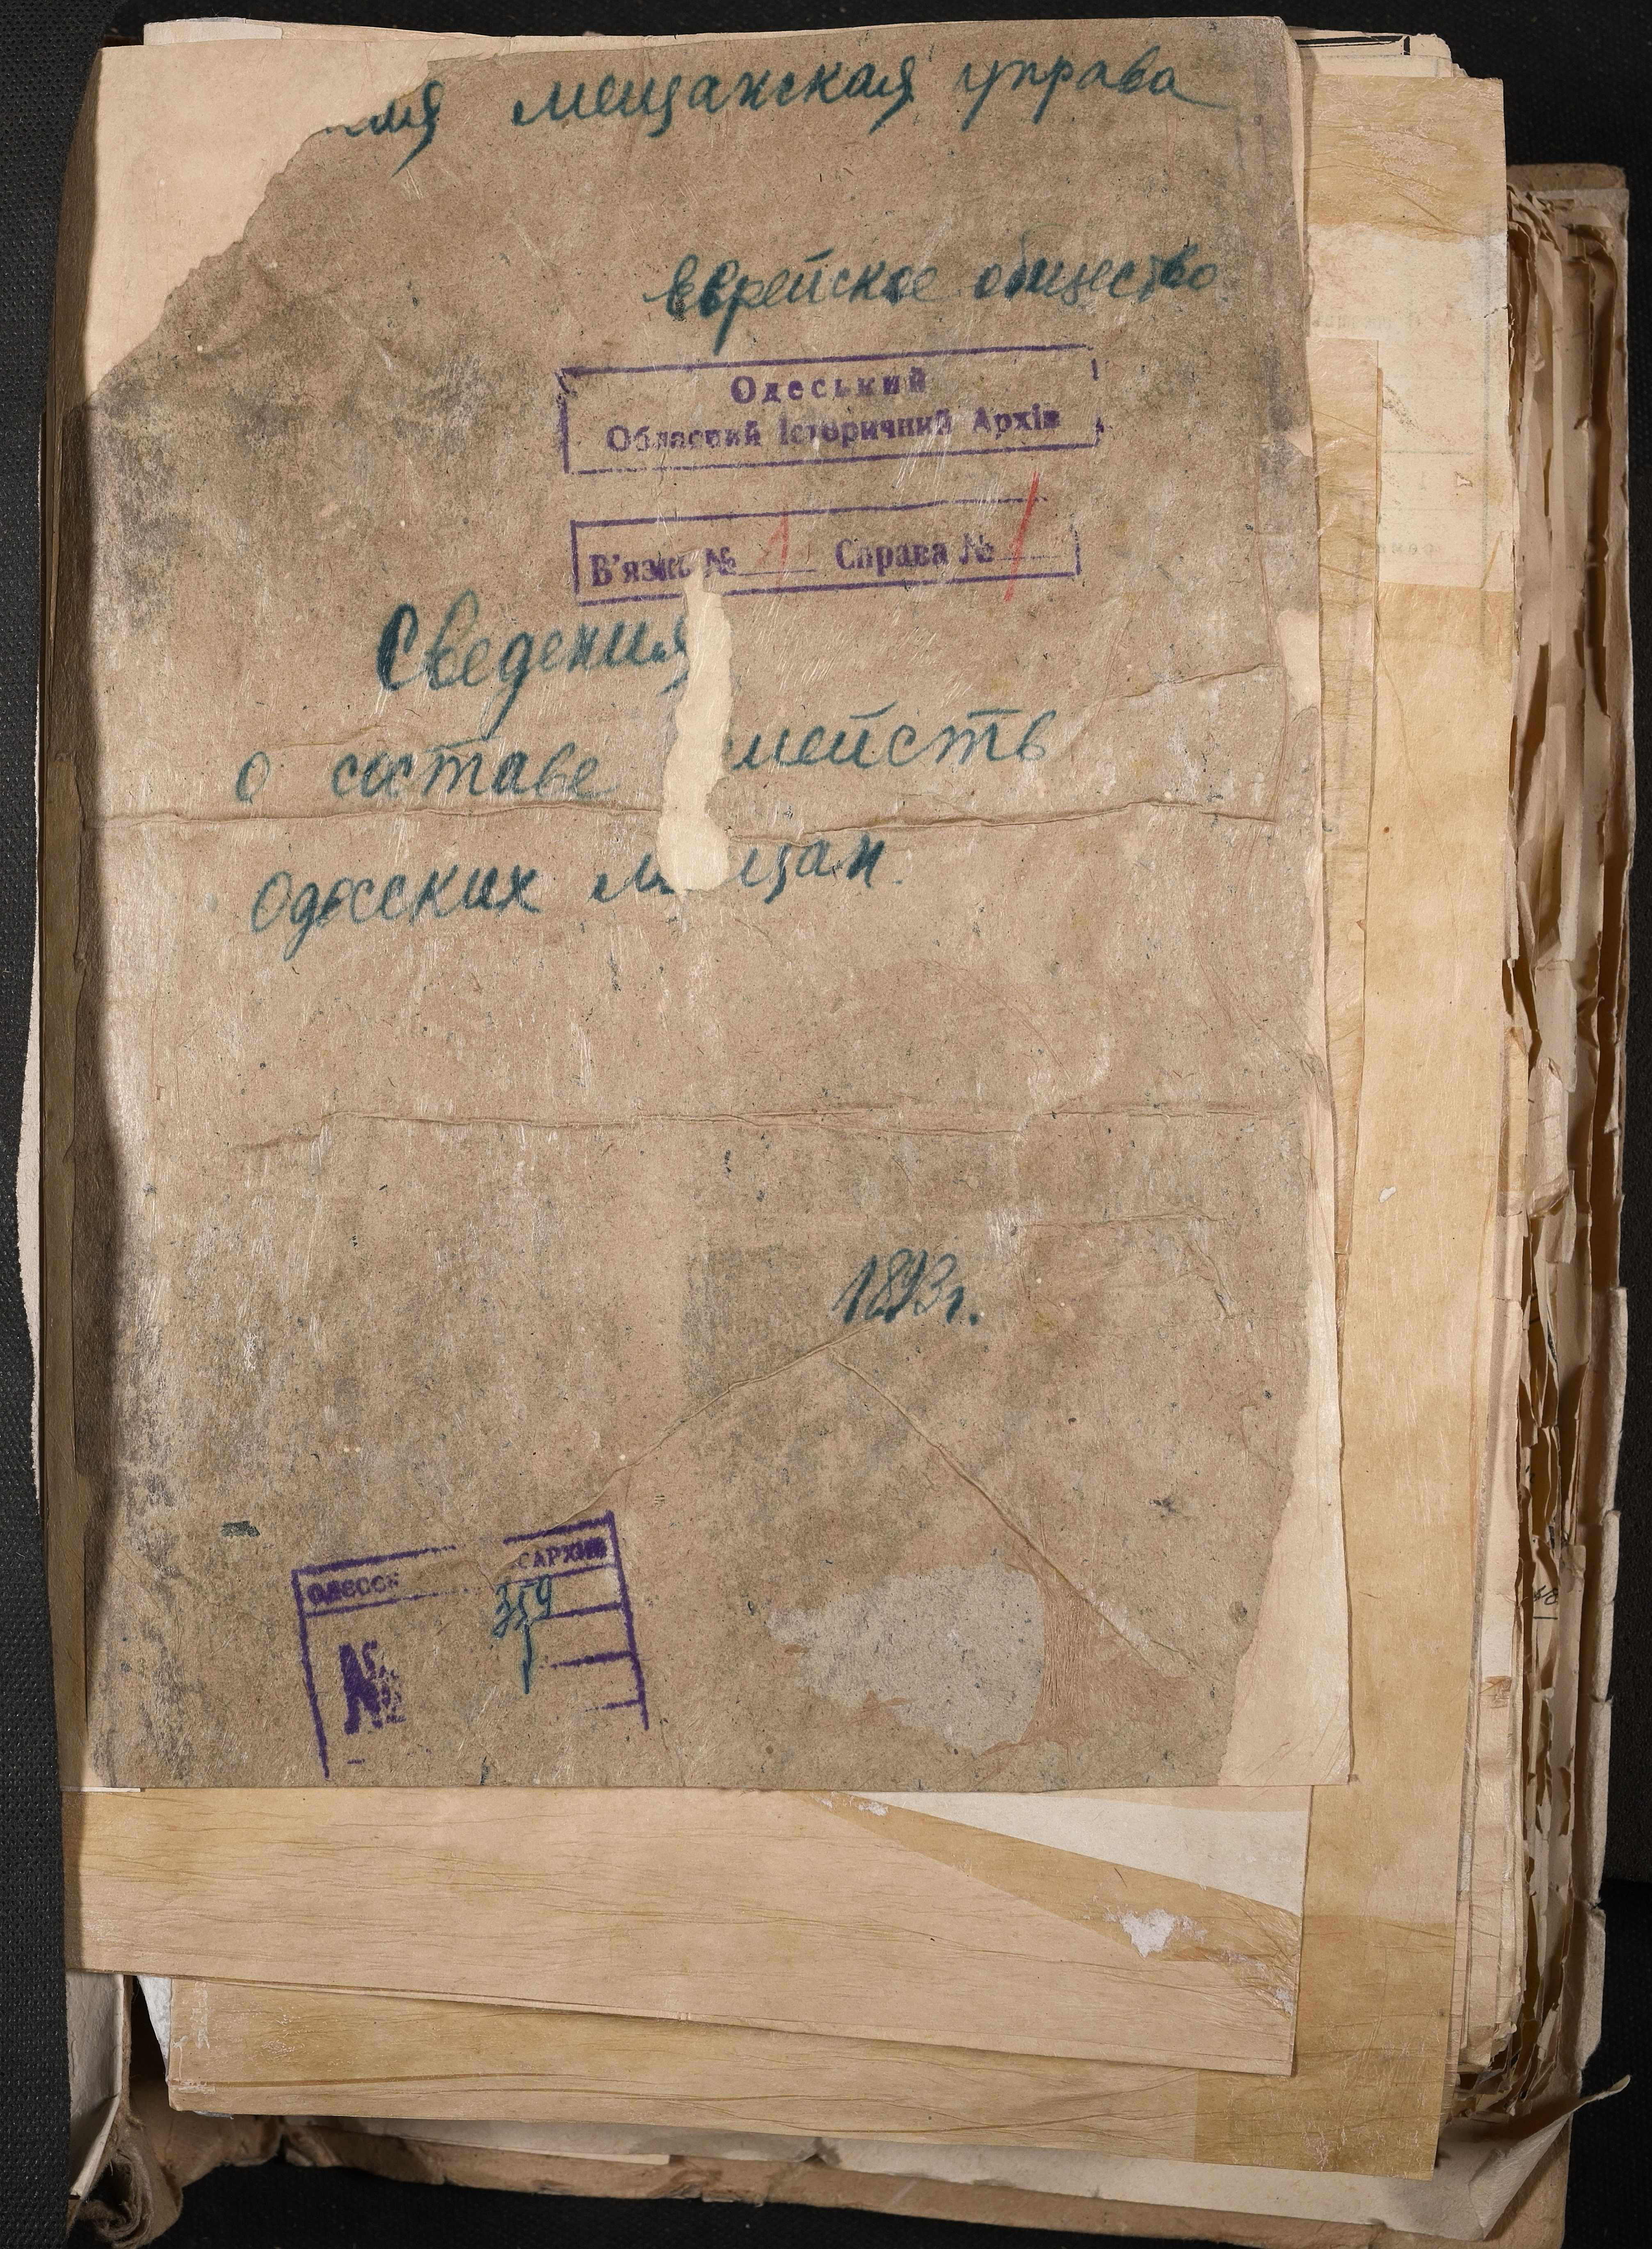 мещанская управа
еврейское общество
Одеський
Обласний Історичний Архів
В'язка № 1 Справа № 1
Сведения
о составе мейств
Одесских м щан.
1893г.
АРХИВ
359
№